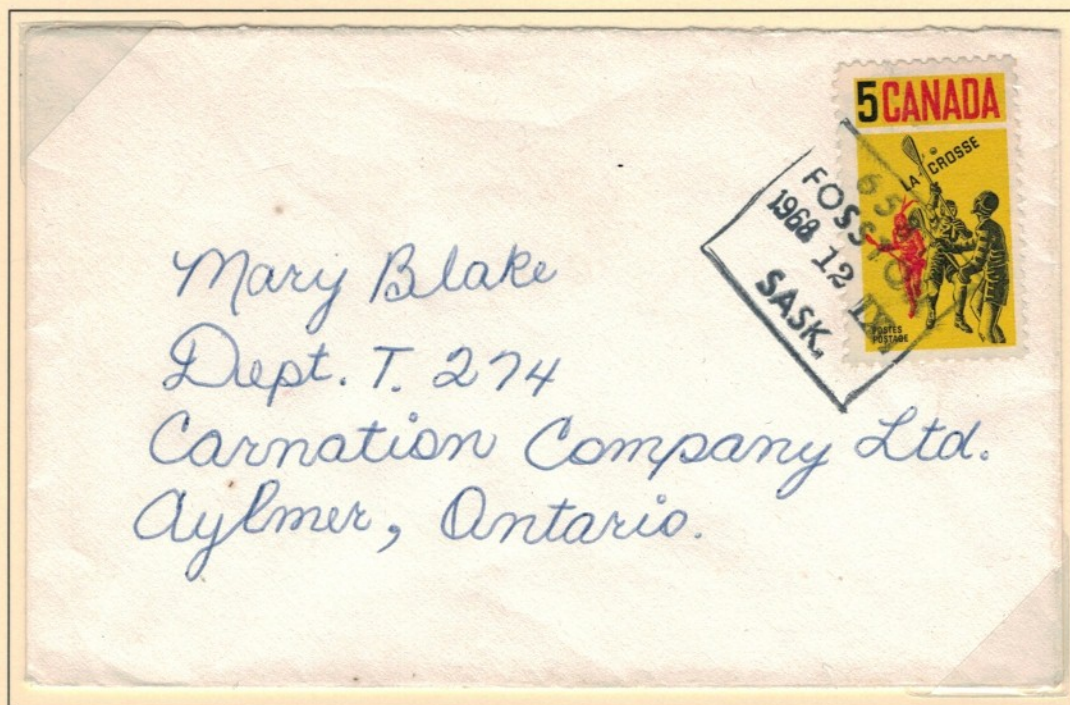 5 CANADA
LA CROSSE
POSTES
POSTAGE
FOSSTON
1968 12
SASK.
Mary Blake
Dept. T. 274
Carnation Company Ltd.
Aylmer, Ontario.